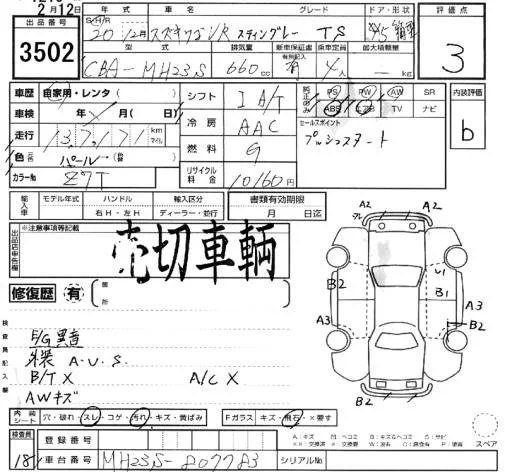 2月12日
年式 車名 グレード ドア・形状 評価点
出品番号 S・H/R
3502 20 12月 スズキワゴンR スティングレー TS 5
型式 排気量 新車保証書 有無記入 乗車定員 最大積載量
CBA-MH23S 660cc 有 4人 kg 3
車歴 自家用・レンタ( ) シフト I A/T 純正のみ PS PW AW SR 内装評価
車検 年 月(日) 冷房 AAC ABS エアB TV ナビ b
走行 137,171 km マイル 燃料 G セールスポイント
プッシュスタート
色 パール リサイクル料金 10160円
カラーNo Z7T
輸入車 モデル年式 ハンドル 輸入区分 書類有効期限
右H・左H ディーラー・並行 月 日迄
出品店申告欄 ※注意事項等記載
売切車輌
修復歴 有 箇所
検査員記入欄
E/G異音
外装 A・U・S
B/TX A/CX
AWキズ
A2 A2
U1
B2 B1
A3 A3
B2
B2 A2
内装シート 穴・破れ・スレ・コゲ・汚れ・キズ・黄ばみ Fガラス キズ・飛石・×要す
スペア
検査員 登録番号
181 車台番号 MH23S-807783 シリアルNo.